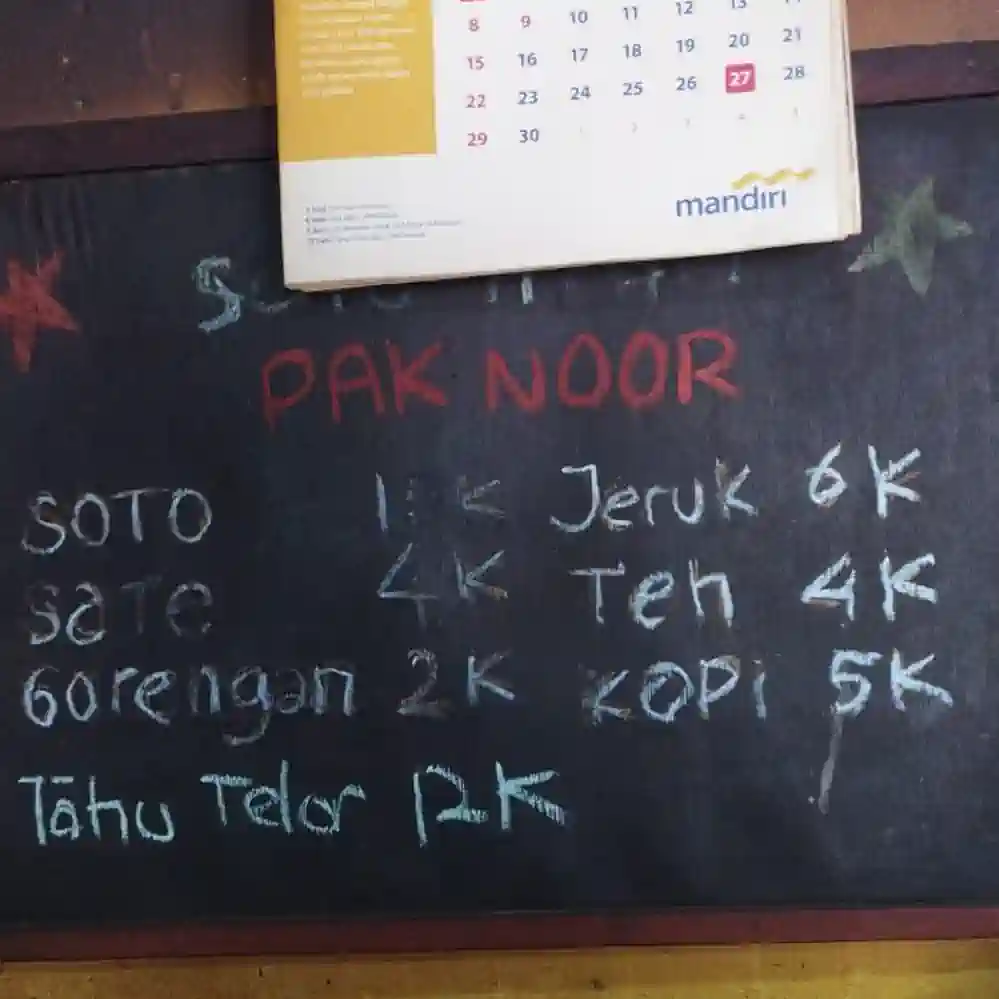 8 9 10 11 12 13
15 16 17 18 19 20 21
22 23 24 25 26 27 28
29 30
mandiri
PAK NOOR
SOTO
Jeruk 6K
SaTe 4K
Teh 4K
Gorengan 2K
KOPi 5K
Tahu Telor 12K